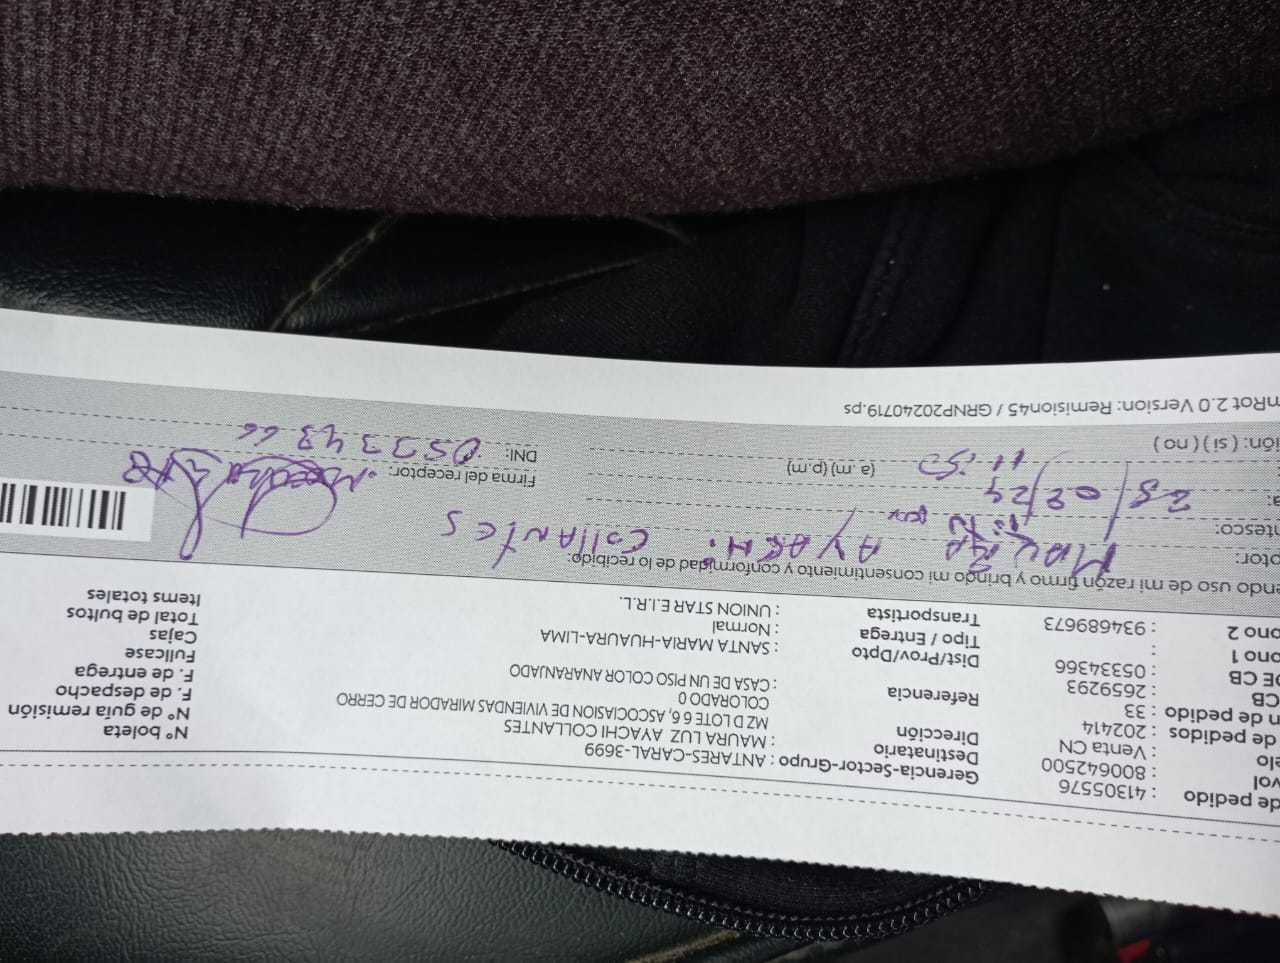 de pedido : 41305576
val : 800642500
elo : Venta CN
de pedidos : 202414
n de pedido : 33
CB : 2659293
DE CB : 05334366
ono 1 :
ono 2 : 934689673
Gerencia-Sector-Grupo : ANTARES-CARAL-3699
Destinatario : MAURA LUZ AYACHI COLLANTES
Dirección MZ D LOTE 6 6, ASCOCIASION DE VIVIENDAS MIRADOR DE CERRO
COLORADO 0
Referencia : CASA DE UN PISO COLOR ANARANJADO
Dist/Prov/Dpto : SANTA MARIA-HUAURA-LIMA
Tipo / Entrega : Normal
Transportista : UNION STAR E.I.R.L.
N° boleta
N° de guía remisión
F. de despacho
F. de entrega
Fullcase
Cajas
Total de bultos
Items totales
endo uso de mi razón firmo y brindo mi consentimiento y conformidad de lo recibido:
ptor: MAURA AYACHI COLLANTES
ntesco:
a: (a. m) (p.m) 11:50
ión: ( si ) ( no )
Firma del receptor:
DNI: 05334366
nRot 2.0 Version: Remision45 / GRNP20240719.ps